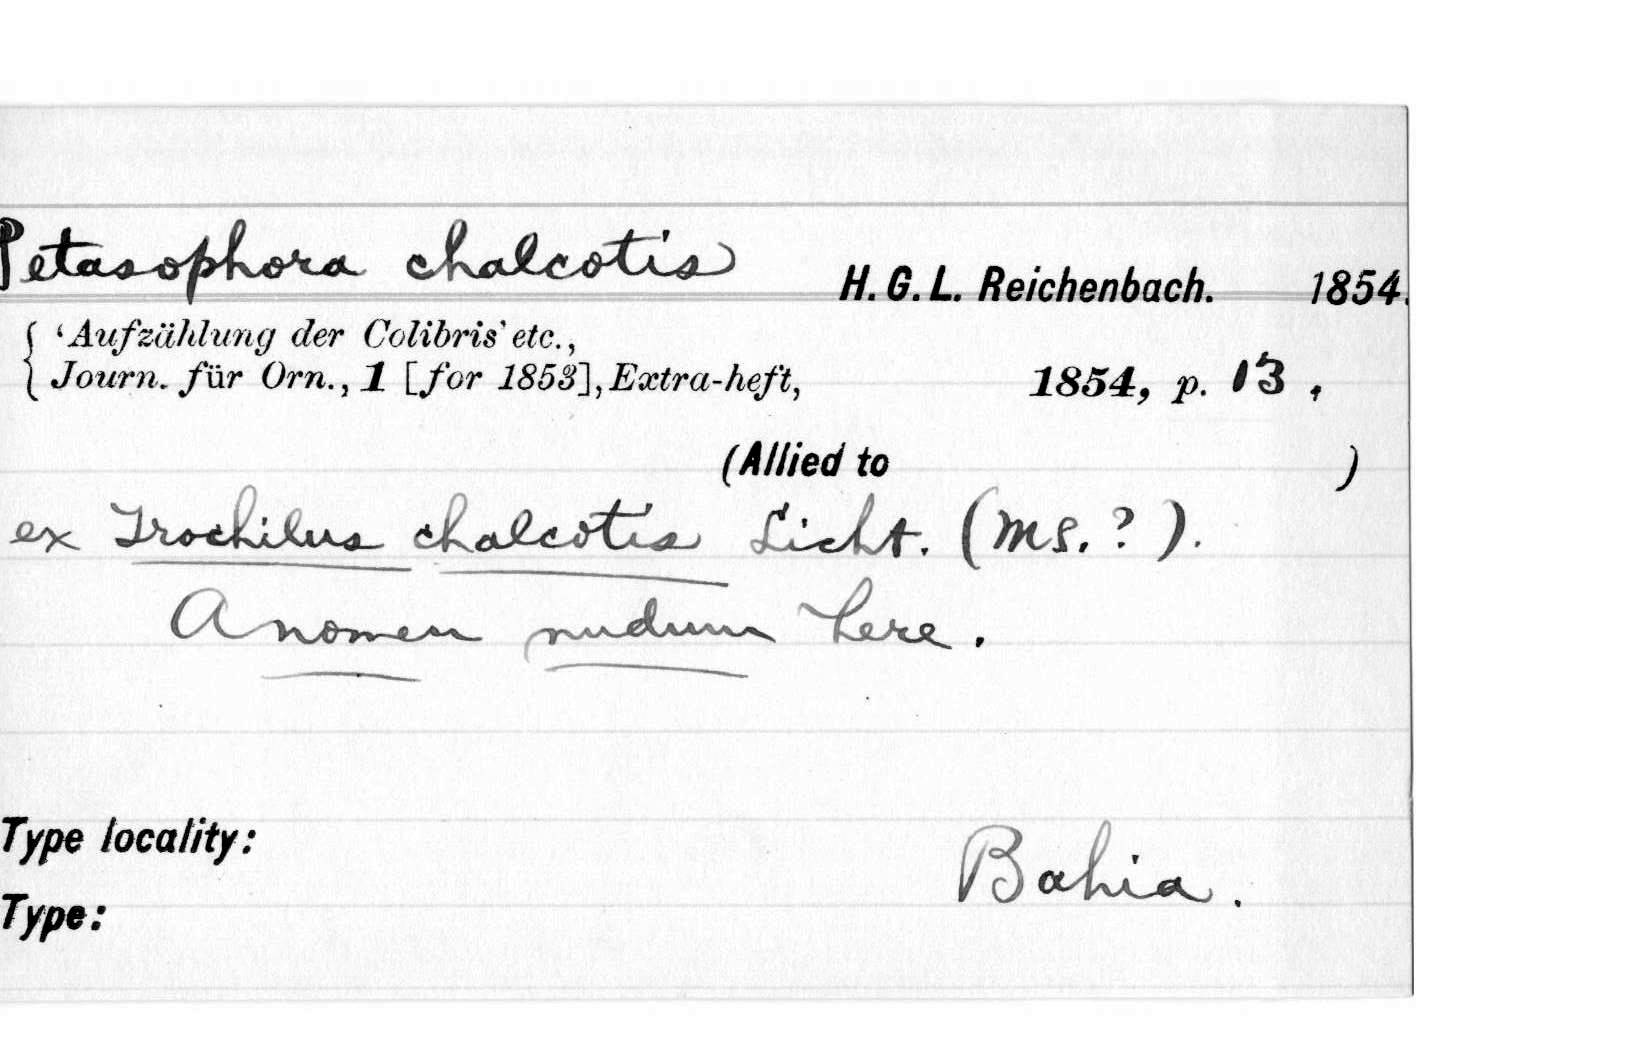 Petasophora chalcotis H. G. L. Reichenbach. 1854.
'Aufzählung der Colibris' etc.,
Journ. für Orn., 1 [for 1853], Extra-heft, 1854, p. 13.
(Allied to )
ex Trochilus chalcotis Licht. (MS.?).
A nomen nudum here.
Type locality:
Bahia.
Type: